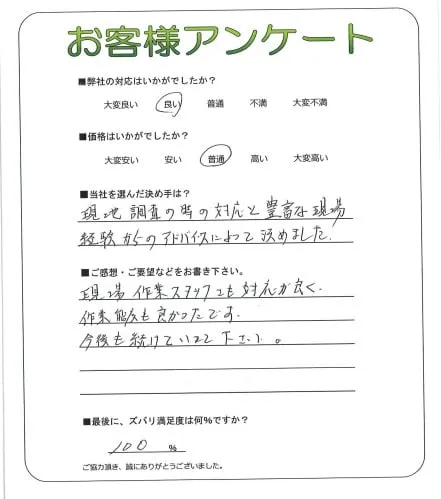 お客様アンケート
■弊社の対応はいかがでしたか?
大変良い 良い 普通 不満 大変不満
■価格はいかがでしたか?
大変安い 安い 普通 高い 大変高い
■当社を選んだ決め手は?
現地調査の時の対応と豊富な現場
経験からのアドバイスによって決めました.
■ご感想・ご要望などをお書き下さい。
現場作業スタッフも対応が良く.
作業能力も良かったです.
今後も続けていって下さい。
■最後に、ズバリ満足度は何%ですか?
100 %
ご協力頂き、誠にありがとうございました。